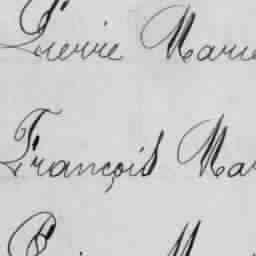 Pierre Marie
François Mar